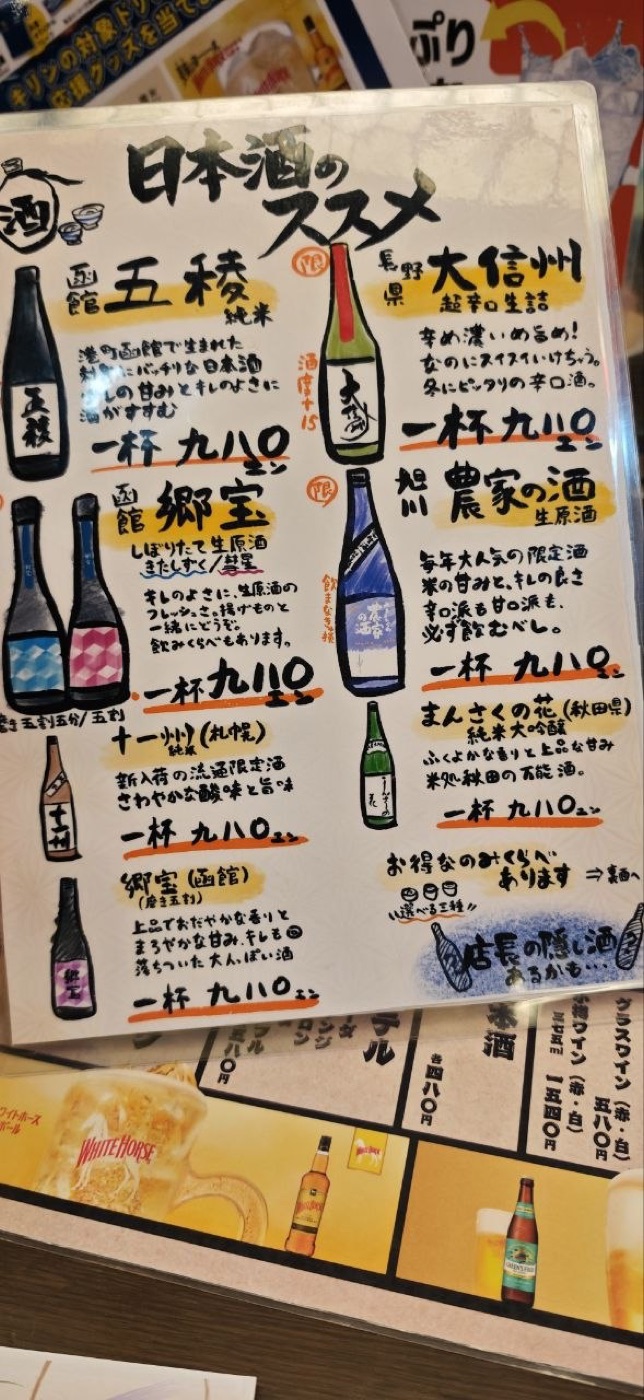 キリンの対象ドリ
応援グッズを当て
ぷり
酒
日本酒の
ススメ
函館
五稜
純米
五稜
港町函館で生まれた
にバッチリな日本酒
の甘みとキレのよさに
酒がすすむ
一杯 九八〇エン
限
長野県
大信州
超辛口生詰
酒度+15
大信州
辛め濃いめ旨め!
なのにスイスイいけちゃう。
冬にピッタリの辛口酒。
一杯 九八〇エン
函館
郷宝
しぼりたて生原酒
きたしずく/彗星
キレのよさに、生原酒の
フレッシュさ。揚げものと
一緒にどうぞ。
飲みくらべもあります。
一杯 九八〇エン
磨き五割五分/五割
限
旭川
農家の酒
生原酒
飲まなき損
農家の酒
毎年大人気の限定酒
米の甘みと、キレの良さ
辛口派も甘口派も、
必ず飲むべし。
一杯 九八〇エン
十一州(札幌)
純米
十一州
新入荷の流通限定酒
さわやかな酸味と旨味
一杯 九八〇エン
まんさくの花(秋田県)
純米大吟醸
まんさくの花
ふくよかな香りと上品な甘み
米処秋田の万能酒。
一杯 九八〇エン
郷宝(函館)
(磨き五割)
郷宝
上品でおだやかな香りと
まろやかな甘み。キレも
落ちついた大人っぽい酒
一杯 九八〇エン
お得なのみくらべ
あります ⇒裏面へ
"選べる三種"
店長の隠し酒
あるかも…
八〇円
本酒
各四八〇円
グラスワイン(赤・白)
五八〇円
ワイン(赤・白)
一五四〇円
ワイトホース
WHITE HORSE